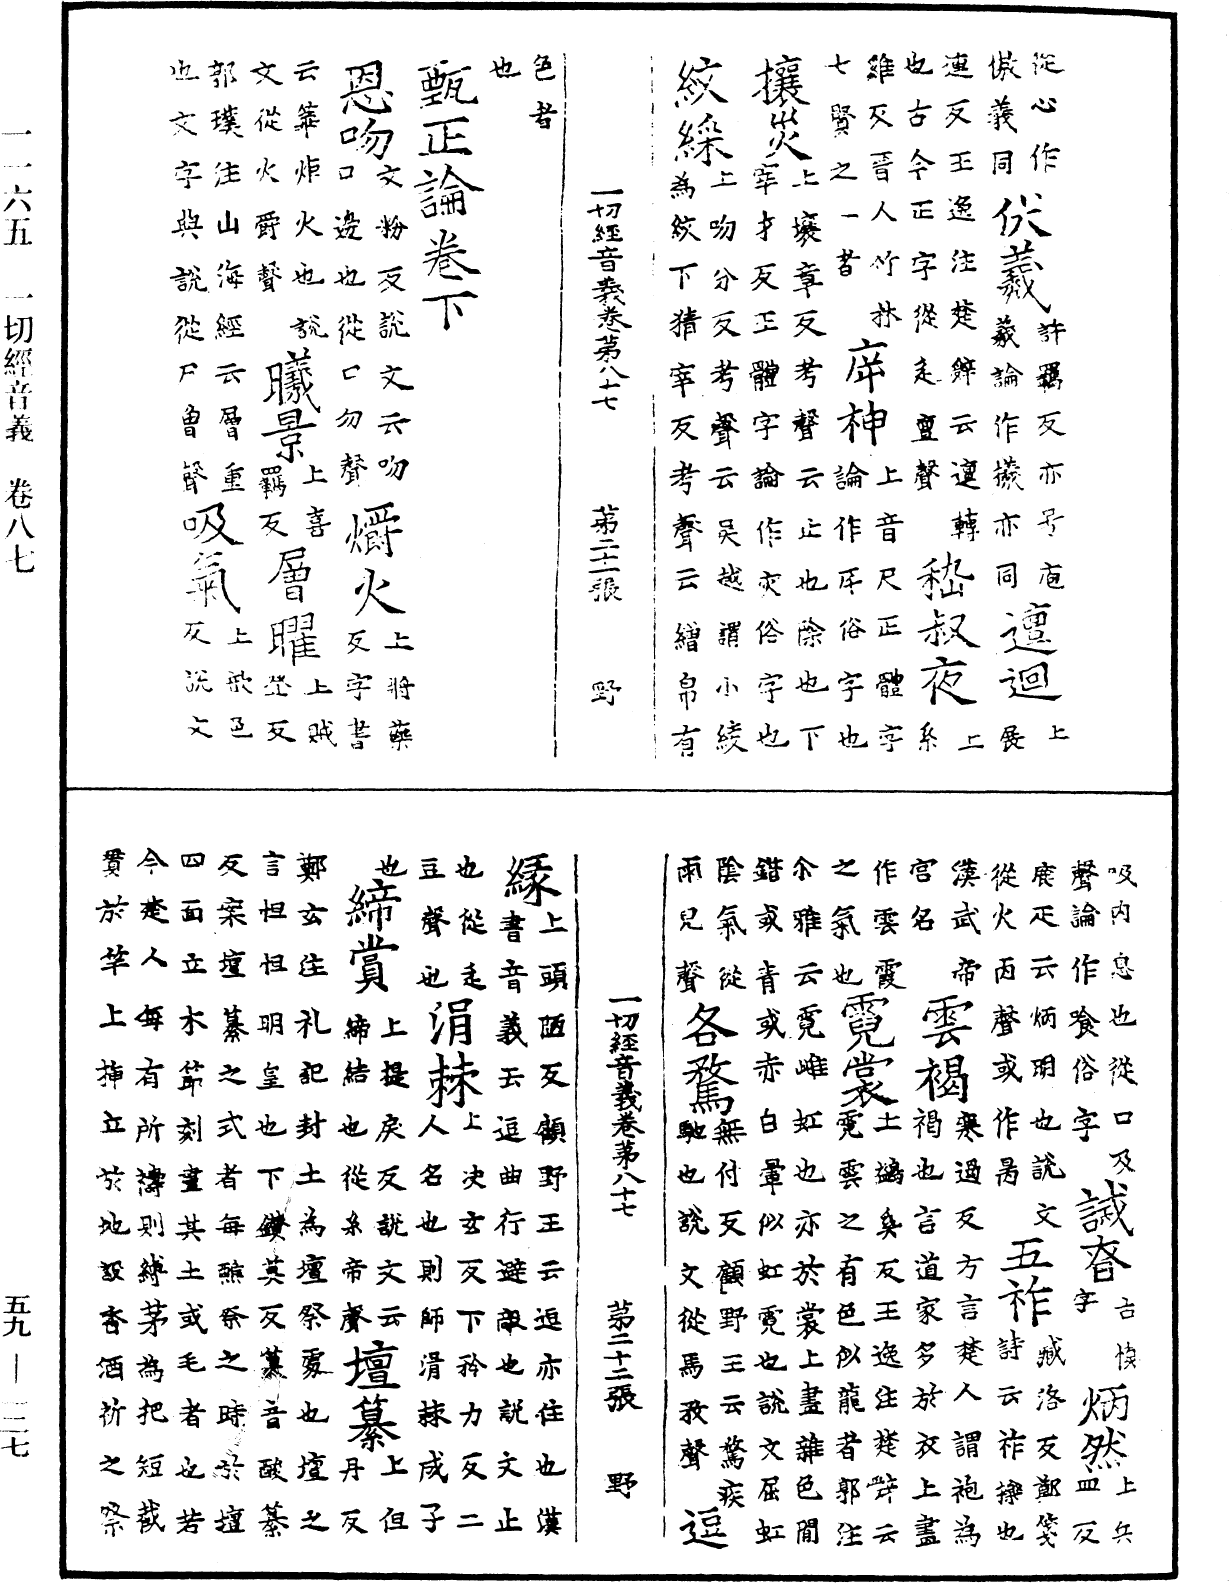 從心作
傲義同
伏羲
許羈反亦号庖
羲論作檥亦同
邅迴
上
展
連反王逸注楚辭云邅轉
也古今正字從辵亶聲
嵇叔夜
上
系
雞反晉人竹林
七賢之一者
神
上音尺正體字
論作斥俗字也
攘災
上壤章反考聲云止也除也下
宰才反正體字論作灾俗字也
紋綵
上吻分反考聲云吳越謂小綾
為紋下猜宰反考聲云繒帛有
一切經音義卷第八十七 第二十一張 野
色者
也
甄正論卷下
恩吻
文粉反說文云吻
口邊也從口勿聲
爝火
上將藥
反字書
云炬火也說
文從火爵聲
曦景
上喜
羈反
層曜
上賊
登反
郭璞注山海經云層重
也文字典說從尸曾聲
吸氣
上歆邑
反說文
吸內息也從口及
聲論作噏俗字
誡昚
古慎
字
炳然
上兵
皿反
疋云炳明也說文
從火丙聲或作昺
五祚
臧洛反鄭箋
詩云祚也
漢武帝
宮名
雲褐
寒過反方言楚人謂袍為
褐也言道家多於衣上畫
作雲霞
之氣也
霓裳
上奚反王逸注楚辭云
霓雲之有色似龍者郭注
尒雅云霓雌虹也亦於裳上畫雜色間
錯或青或赤白暈似虹霓也說文屈虹
陰氣從
雨兒聲
各騖
無付反顧野王云騖疾
馳也說文從馬敄聲
逗
一切經音義卷第八十七 第二十二張 野
緣
上頭陋反顧野王云逗亦住也漢
書音義云逗曲行避敵也說文止
也從辵
豆聲也
涓棘
上決玄反下矜力反二
人名也則師涓棘成子
也
締賞
上提戾反說文云
締結也從糸帝聲
壇纂
上但
丹反
鄭玄注礼記封土為壇祭處也壇之
言怛怛明皇也下鑚莫反纂音酸
反案壇纂之式者每醮祭之時於壇
四面立木笴刻畫其上或毛者也若
今楚人每有所禱則縛茅為把短截
貫於竿上揷立於地設香酒祈之祭
一一六五 一切經音義 卷八七 五九—一二七